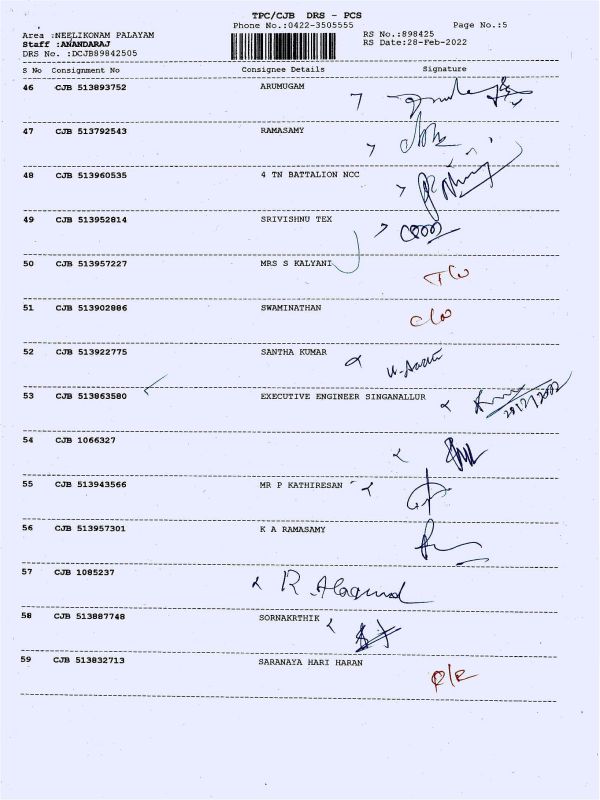 TPC/CJB DRS - PCS
Phone No.:0422-3505555 Page No.:5
Area :NEELIKONAM PALAYAM RS No.:898425
Staff :ANANDARAJ RS Date:28-Feb-2022
DRS No. :DCJB89842505
S No Consignment No Consignee Details Signature
46 CJB 513893752 ARUMUGAM
47 CJB 513792543 RAMASAMY
48 CJB 513960535 4 TN BATTALION NCC
49 CJB 513952814 SRIVISHNU TEX
50 CJB 513957227 MRS S KALYANI
51 CJB 513902886 SWAMINATHAN
52 CJB 513922775 SANTHA KUMAR
53 CJB 513863580 EXECUTIVE ENGINEER SINGANALLUR
54 CJB 1066327
55 CJB 513943566 MR P KATHIRESAN
56 CJB 513957301 K A RAMASAMY
57 CJB 1085237
58 CJB 513887748 SORNAKRTHIK
59 CJB 513832713 SARANAYA HARI HARAN
R/R